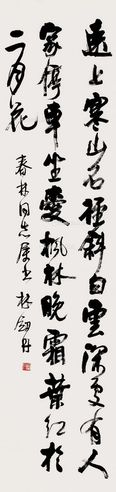 遠上寒山石徑斜白雲深處有人
家停車坐愛楓林晚霜葉紅於
二月花
春林同志属书林劍丹